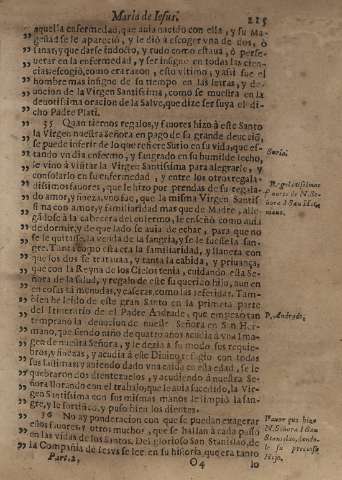 Maria de Iesus. 215
aquella enfermedad, que auia nacido con ella, y su Ma-
gestad se le apareciò, y le diò à escoger vna de dos, ò
sanar, y que darse indocto, y rudo como estaua, ò perse-
uerar en la enfermedad, y ser insigne en todas las cien-
cias; escogiò, como era razon, esto vltimo, y assi fue el
hombre mas insigne de su tiempo en las letras, y de-
uocion de la Virgen Santissima, como se muestra en la
deuotissima oracion de la Salve, que dize ser suya el di-
cho Padre Plati.
35 Quan tiernos regalos, y fauores hizo à este Santo
la Virgen nuestra Señora en pago de su grande deuociõ,
se puede inferir de lo que refiere Surio en su vida, que es-
tando vn dia enfermo, y sangrado en su humilde lecho,
le vino à visitar la Virgen Santissima para alegrarle, y
consolarlo en su enfermedad, y entre los otros regala-
dissimos fauores, que le hizo por prendas de su regala-
do amor, y fineza, vno fue, que la misma Virgen Santissi-
ma con amor, y familiaridad mas que de Madre, alle-
gandose à la cabecera del enfermo, le enseñò como auia
de dormir, y de que lado se auia de echar, para que no
se le quitasse la venda de la sangria, y se le fuesse la san-
gre. Tanta como esta era la familiaridad, y llaneza con
que los dos se tratauan, y tanta la cabida, y priuança,
que con la Reyna de los Cielos tenia, cuidando ella Se-
ñora de la salud, y regalo de este su querido hijo, aun en
en cosas tã menudas, y caseras, como las referidas. Tam-
bien he leido de este gran Santo en la primera parte
del Itinerario del Padre Andrade, que empeço tan
temprano la deuocion de nuestra Señora en San Her-
mano, que siendo niño de quatro años acudia à vna Ima-
gen de nuestra Señora, y le dezia à su modo sus requie-
bros, y finezas, y acudia à este Diuino refugio con todas
sus lastimas; y auiendo dado vna caida en esta edad, se le
quebraron dos dientezuelos, y acudiendo à nuestra Se-
ñora llorando con el trabajo, que le auia sucedido, la Vir-
gen Santissima con sus mismas manos le limpiò la san-
gre, y le fortificò, y puso bien los dientes.
36 No ay ponderacion con que se puedan exagerar
estos fauores, y otros muchos, que se hallan à cada passo
en las vidas de los Santos. Del glorioso San Stanislao, de
la Compañia de Iesus se lee en su historia, que era tanto
Part. 2, O4 lo
Surio.
Regaladissimos
Fauores de N. Se-
ñora à San Her-
mano.
P. Andrade.
Fauor que hizo
N. Señora à San
Stanislao, dando-
le su precioso
Hijo.